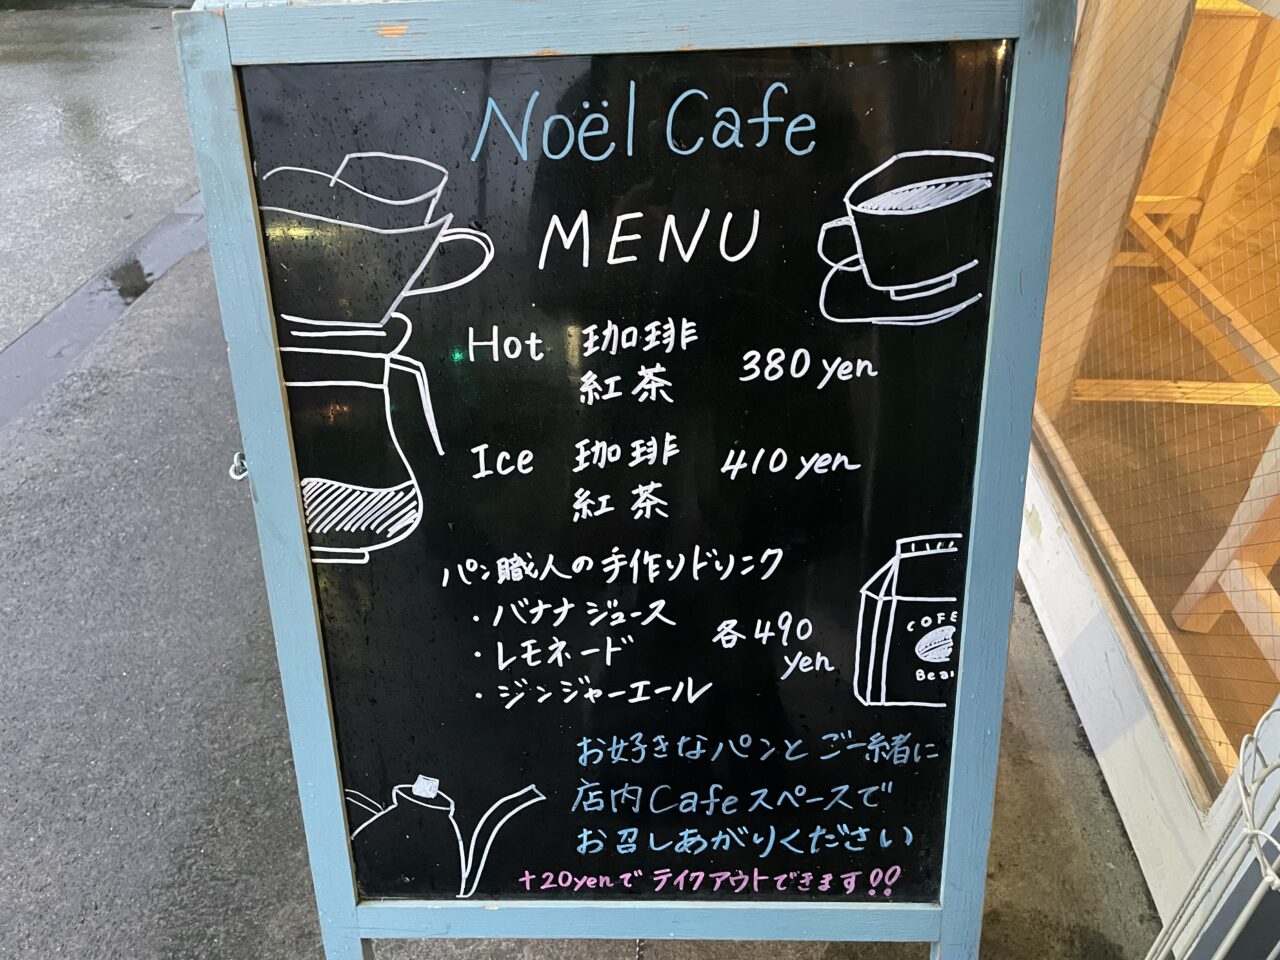 Noël Cafe
MENU
Hot 珈琲 380 yen
紅茶
Ice 珈琲 410 yen
紅茶
パン職人の手作りドリンク
・バナナジュース
・レモネード 各490 yen
・ジンジャーエール
COFE
Bea
お好きなパンとご一緒に
店内Cafeスペースで
お召しあがりください
+20yenでテイクアウトできます!!